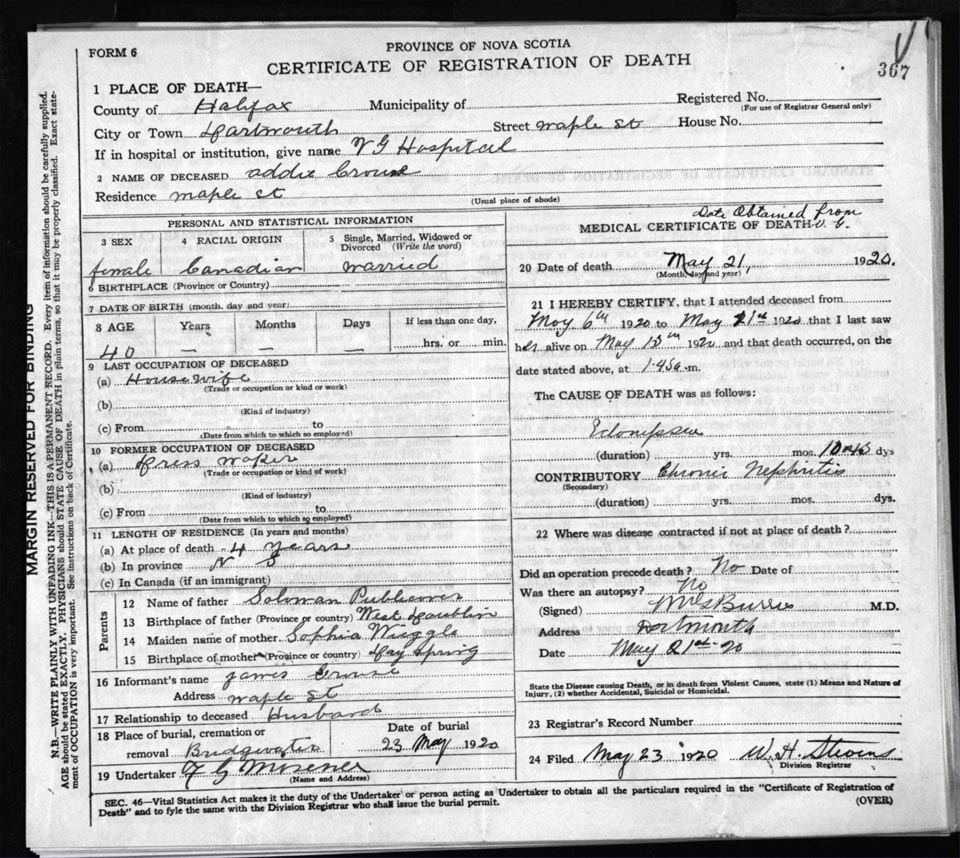 FORM 6
PROVINCE OF NOVA SCOTIA
CERTIFICATE OF REGISTRATION OF DEATH
367
1 PLACE OF DEATH—
County of Halifax Municipality of Registered No.
(For use of Registrar General only)
City or Town Dartmouth Street Maple St House No.
If in hospital or institution, give name V G Hospital
2 NAME OF DECEASED Addie Crouse
Residence Maple St
(Usual place of abode)
PERSONAL AND STATISTICAL INFORMATION
3 SEX 4 RACIAL ORIGIN 5 Single, Married, Widowed or Divorced (Write the word)
female Canadian married
6 BIRTHPLACE (Province or Country)
7 DATE OF BIRTH (month, day and year)
8 AGE Years Months Days If less than one day,
40 — — — hrs. or min.
9 LAST OCCUPATION OF DECEASED
(a) Housewife
(Trade or occupation or kind or work)
(b)
(Kind of industry)
(c) From to
(Date from which to which so employed)
10 FORMER OCCUPATION OF DECEASED
(a) Dress Maker
(Trade or occupation or kind of work)
(b)
(Kind of industry)
(c) From to
(Date from which to which so employed)
11 LENGTH OF RESIDENCE (In years and months)
(a) At place of death 4 years
(b) In province N S
(c) In Canada (if an immigrant)
Parents
12 Name of father Soloman Publicover
13 Birthplace of father (Province or country) West Dublin
14 Maiden name of mother Sophia
15 Birthplace of mother (Province or country) Day Spring
16 Informant's name James Crouse
Address Maple St
17 Relationship to deceased Husband
18 Place of burial, cremation or Date of burial
removal Bridgwater 23 May 1920
19 Undertaker
(Name and Address)
Date Obtained from V. G.
MEDICAL CERTIFICATE OF DEATH
20 Date of death May 21, 1920.
(Month, day and year)
21 I HEREBY CERTIFY, that I attended deceased from
May 6th 1920 to May 21st 1920 that I last saw
her alive on May 1920 and that death occurred, on the
date stated above, at 1.45 a.m.
The CAUSE OF DEATH was as follows:
(duration) yrs. mos. dys
CONTRIBUTORY Chronic Nephritis
(Secondary)
(duration) yrs. mos. dys.
22 Where was disease contracted if not at place of death?
Did an operation precede death? No Date of
Was there an autopsy? No
(Signed) M.D.
Address Dartmouth
Date May 21st-20
State the Disease causing Death, or in death from Violent Causes, state (1) Means and Nature of
Injury, (2) whether Accidental, Suicidal or Homicidal.
23 Registrar's Record Number
24 Filed May 23 1920 W. H. Stevens
Division Registrar
SEC. 46—Vital Statistics Act makes it the duty of the Undertaker or person acting as Undertaker to obtain all the particulars required in the "Certificate of Registration of
Death" and to fyle the same with the Division Registrar who shall issue the burial permit.
(OVER)
MARGIN RESERVED FOR BINDING
N.B.—WRITE PLAINLY WITH UNFADING INK—THIS IS A PERMANENT RECORD. Every item of information should be carefully supplied.
AGE should be stated EXACTLY. PHYSICIANS should STATE CAUSE OF DEATH in plain terms, so that it may be properly classified. Exact state-
ment of OCCUPATION is very important. See instructions on back of Certificate.